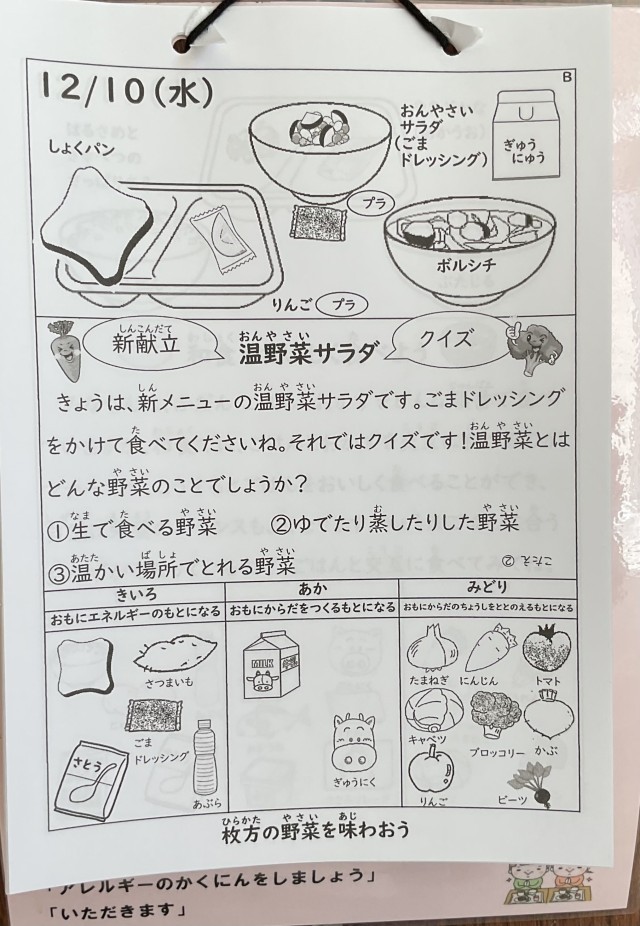 12/10(水)
B
しょくパン
おんやさい
サラダ
(ごま
ドレッシング)
ぎゅう
にゅう
プラ
ボルシチ
りんご プラ
しんこんだて
新献立
おんやさい
温野菜サラダ
クイズ
きょうは、新メニューの温野菜サラダです。ごまドレッシング
をかけて食べてくださいね。それではクイズです!温野菜とは
どんな野菜のことでしょうか?
①生で食べる野菜 ②ゆでたり蒸したりした野菜
③温かい場所でとれる野菜
こたえ ②
きいろ
おもにエネルギーのもとになる
あか
おもにからだをつくるもとになる
みどり
おもにからだのちょうしをととのえるもとになる
さつまいも
ごま
ドレッシング
さとう
あぶら
MILK
ぎゅうにく
たまねぎ にんじん トマト
キャベツ ブロッコリー かぶ
りんご ビーツ
ひらかた やさい あじ
枚方の野菜を味わおう
「アレルギーのかくにんをしましょう」
「いただきます」